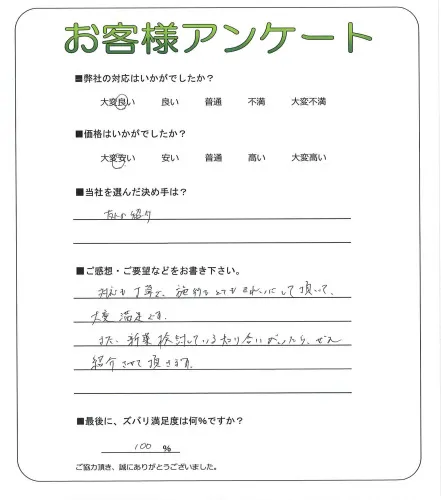 お客様アンケート
■弊社の対応はいかがでしたか？
大変良い 良い 普通 不満 大変不満
■価格はいかがでしたか？
大変安い 安い 普通 高い 大変高い
■当社を選んだ決め手は？
友人の紹介
■ご感想・ご要望などをお書き下さい。
対応も丁寧で、施工もとてもきれいにして頂いて、
大変満足です。
また、新築検討している知り合いがいたら、ぜひ
紹介させて頂きます。
■最後に、ズバリ満足度は何％ですか？
100 ％
ご協力頂き、誠にありがとうございました。